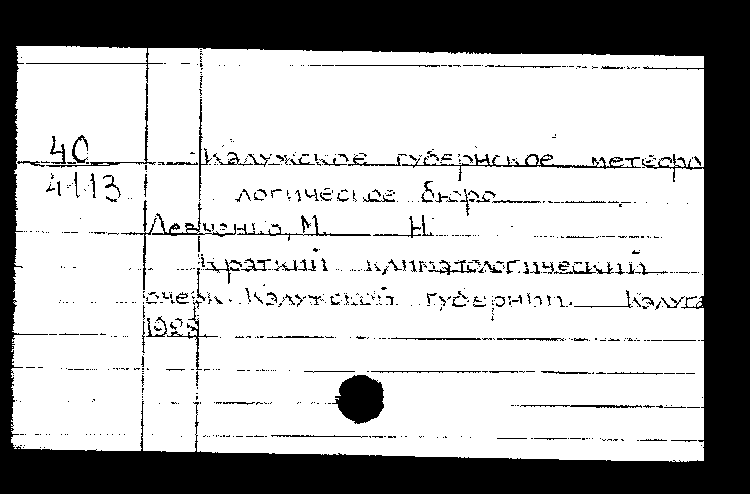 40
4113
Калужское губернское метеоро
логическое бюро
Левченко, М. Н.
Краткий климатологический
очерк Калужской губернии. Калуга
1925